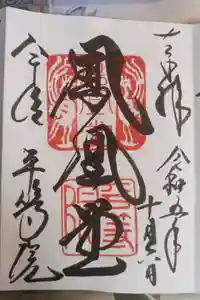 奉拝
令和五年
十月八日
鳳凰堂
平等院